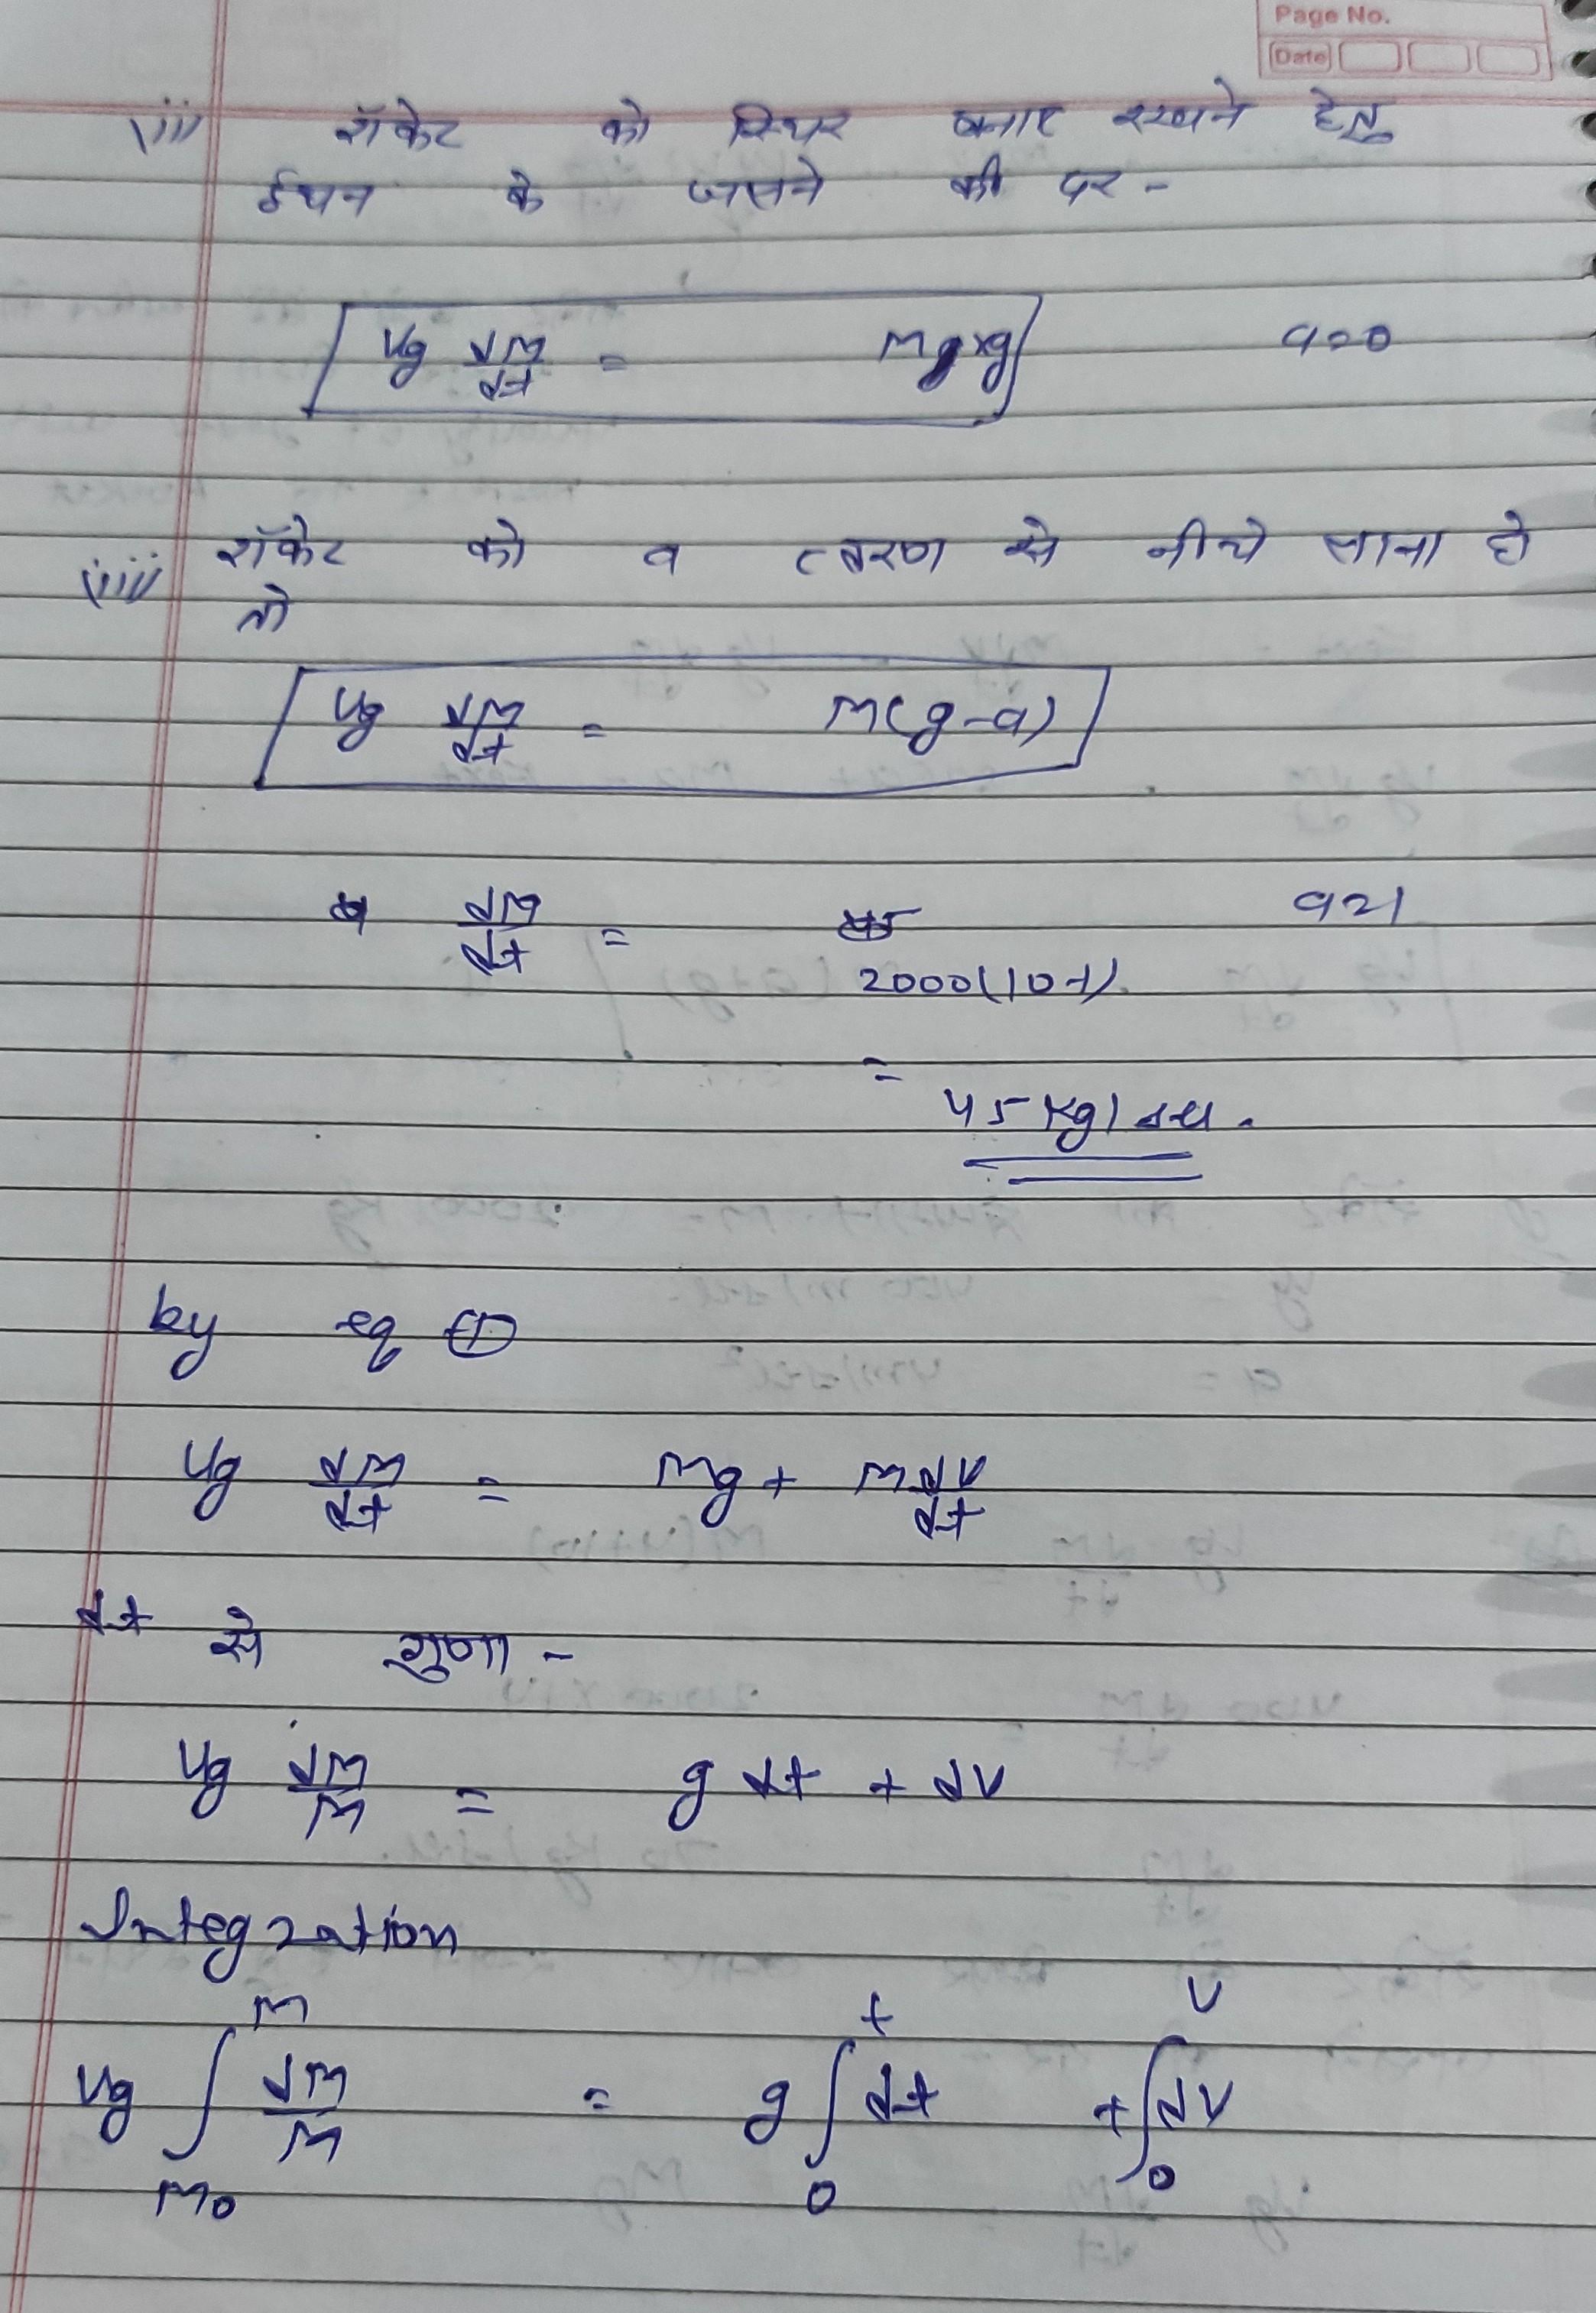 Page No.
Date
(ii) रॉकेट को स्थिर बनाए रखने हेतु
ईंधन के जलने की दर -
Vg dM/dt = Mg a=0
(iii) रॉकेट को a त्वरण से नीचे लाना हो
तो
Vg dM/dt = M(g-a)
dM/dt = a=1
2000(10-1)
= 45 Kg/sec.
by eq ①
Vg dM/dt = Mg + M dV/dt
dt से गुणा -
Vg dM/M = g dt + dV
Integration
Vg ∫_{M0}^{M} dM/M = g ∫_{0}^{t} dt + ∫_{0}^{V} dV